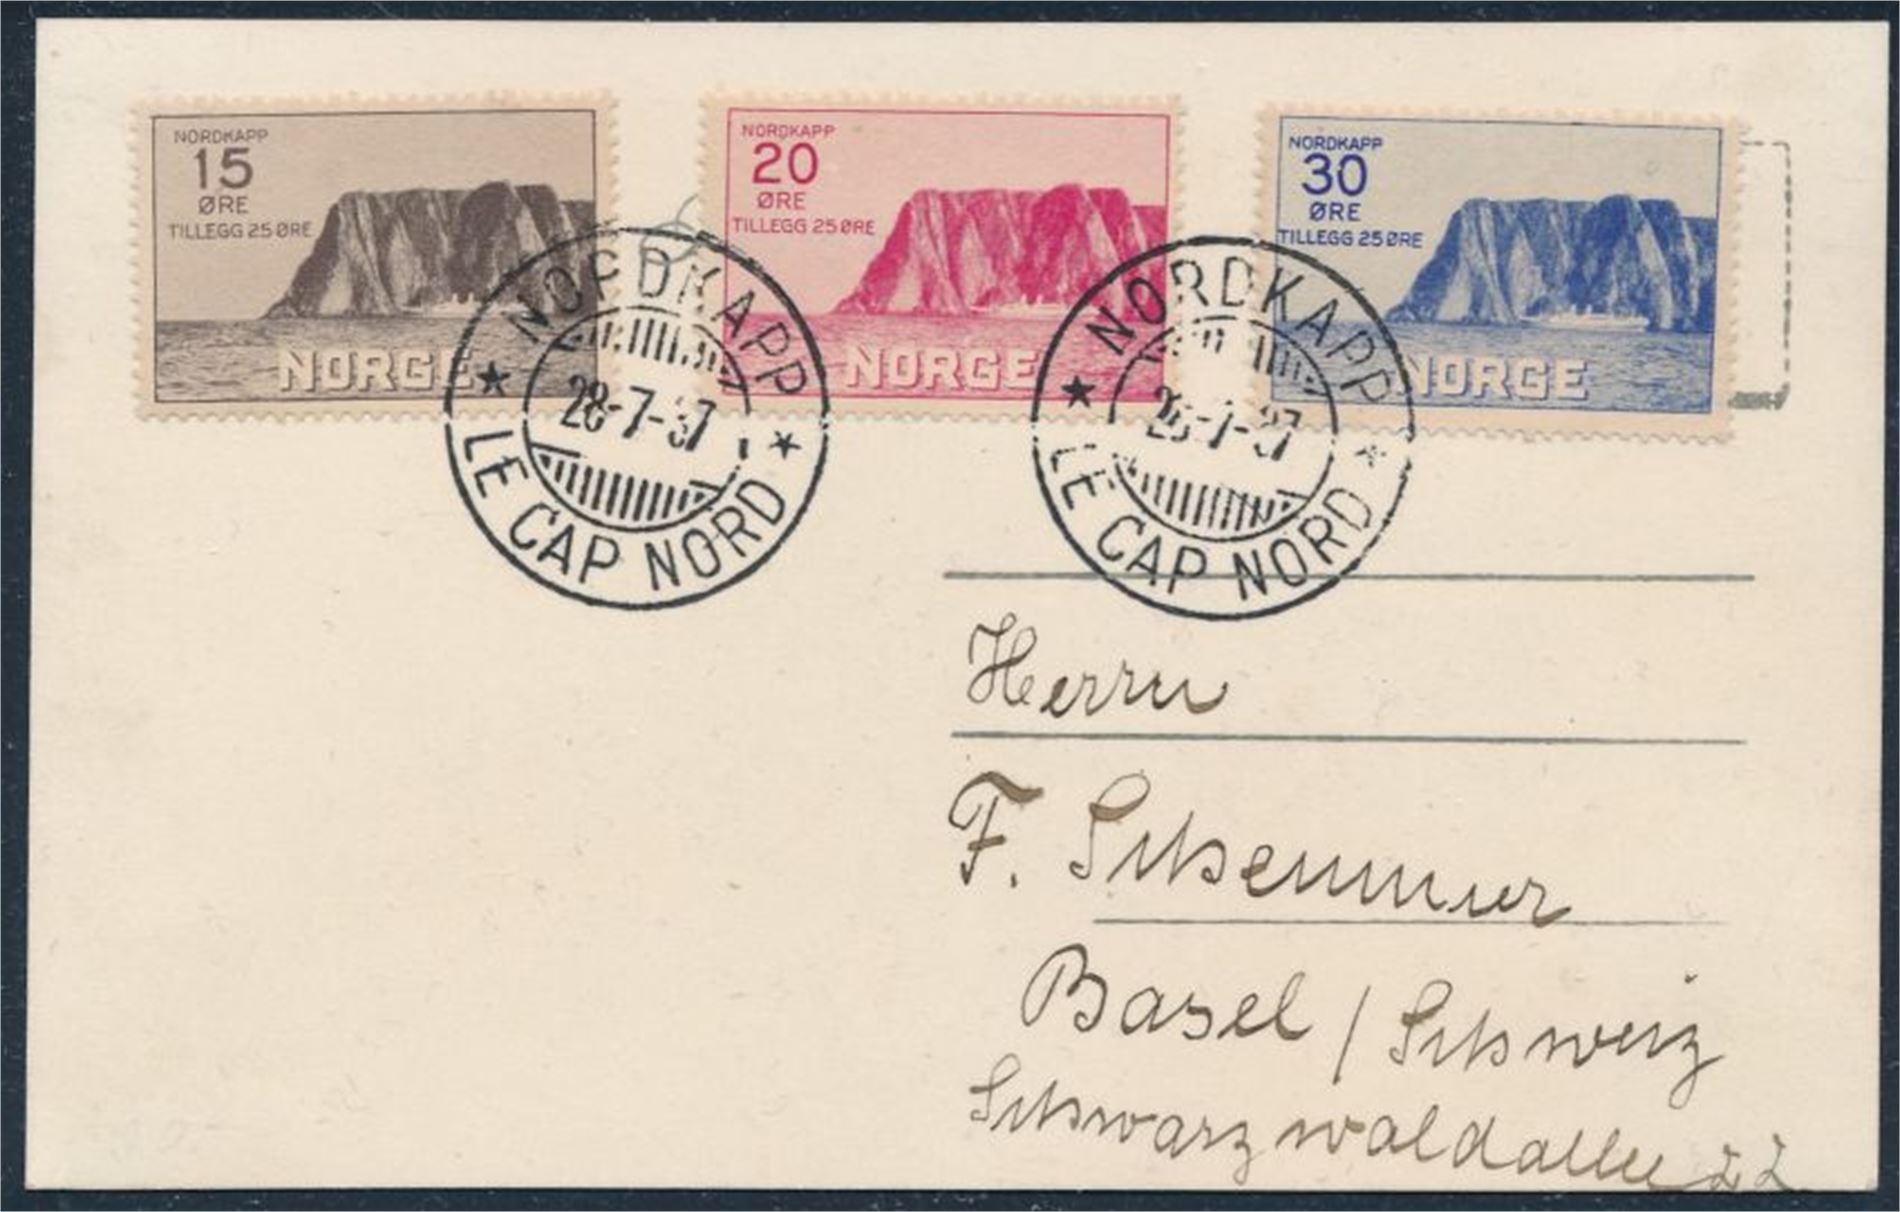 NORDKAPP
15
ØRE
TILLEGG 25 ØRE
NORGE
NORDKAPP
20
ØRE
TILLEGG 25 ØRE
NORGE
NORDKAPP
30
ØRE
TILLEGG 25 ØRE
NORGE
NORDKAPP
28-7-37
LE CAP NORD
NORDKAPP
LE CAP NORD
Herrn
F.
Basel / Schweiz
Schwarzwaldallee 22